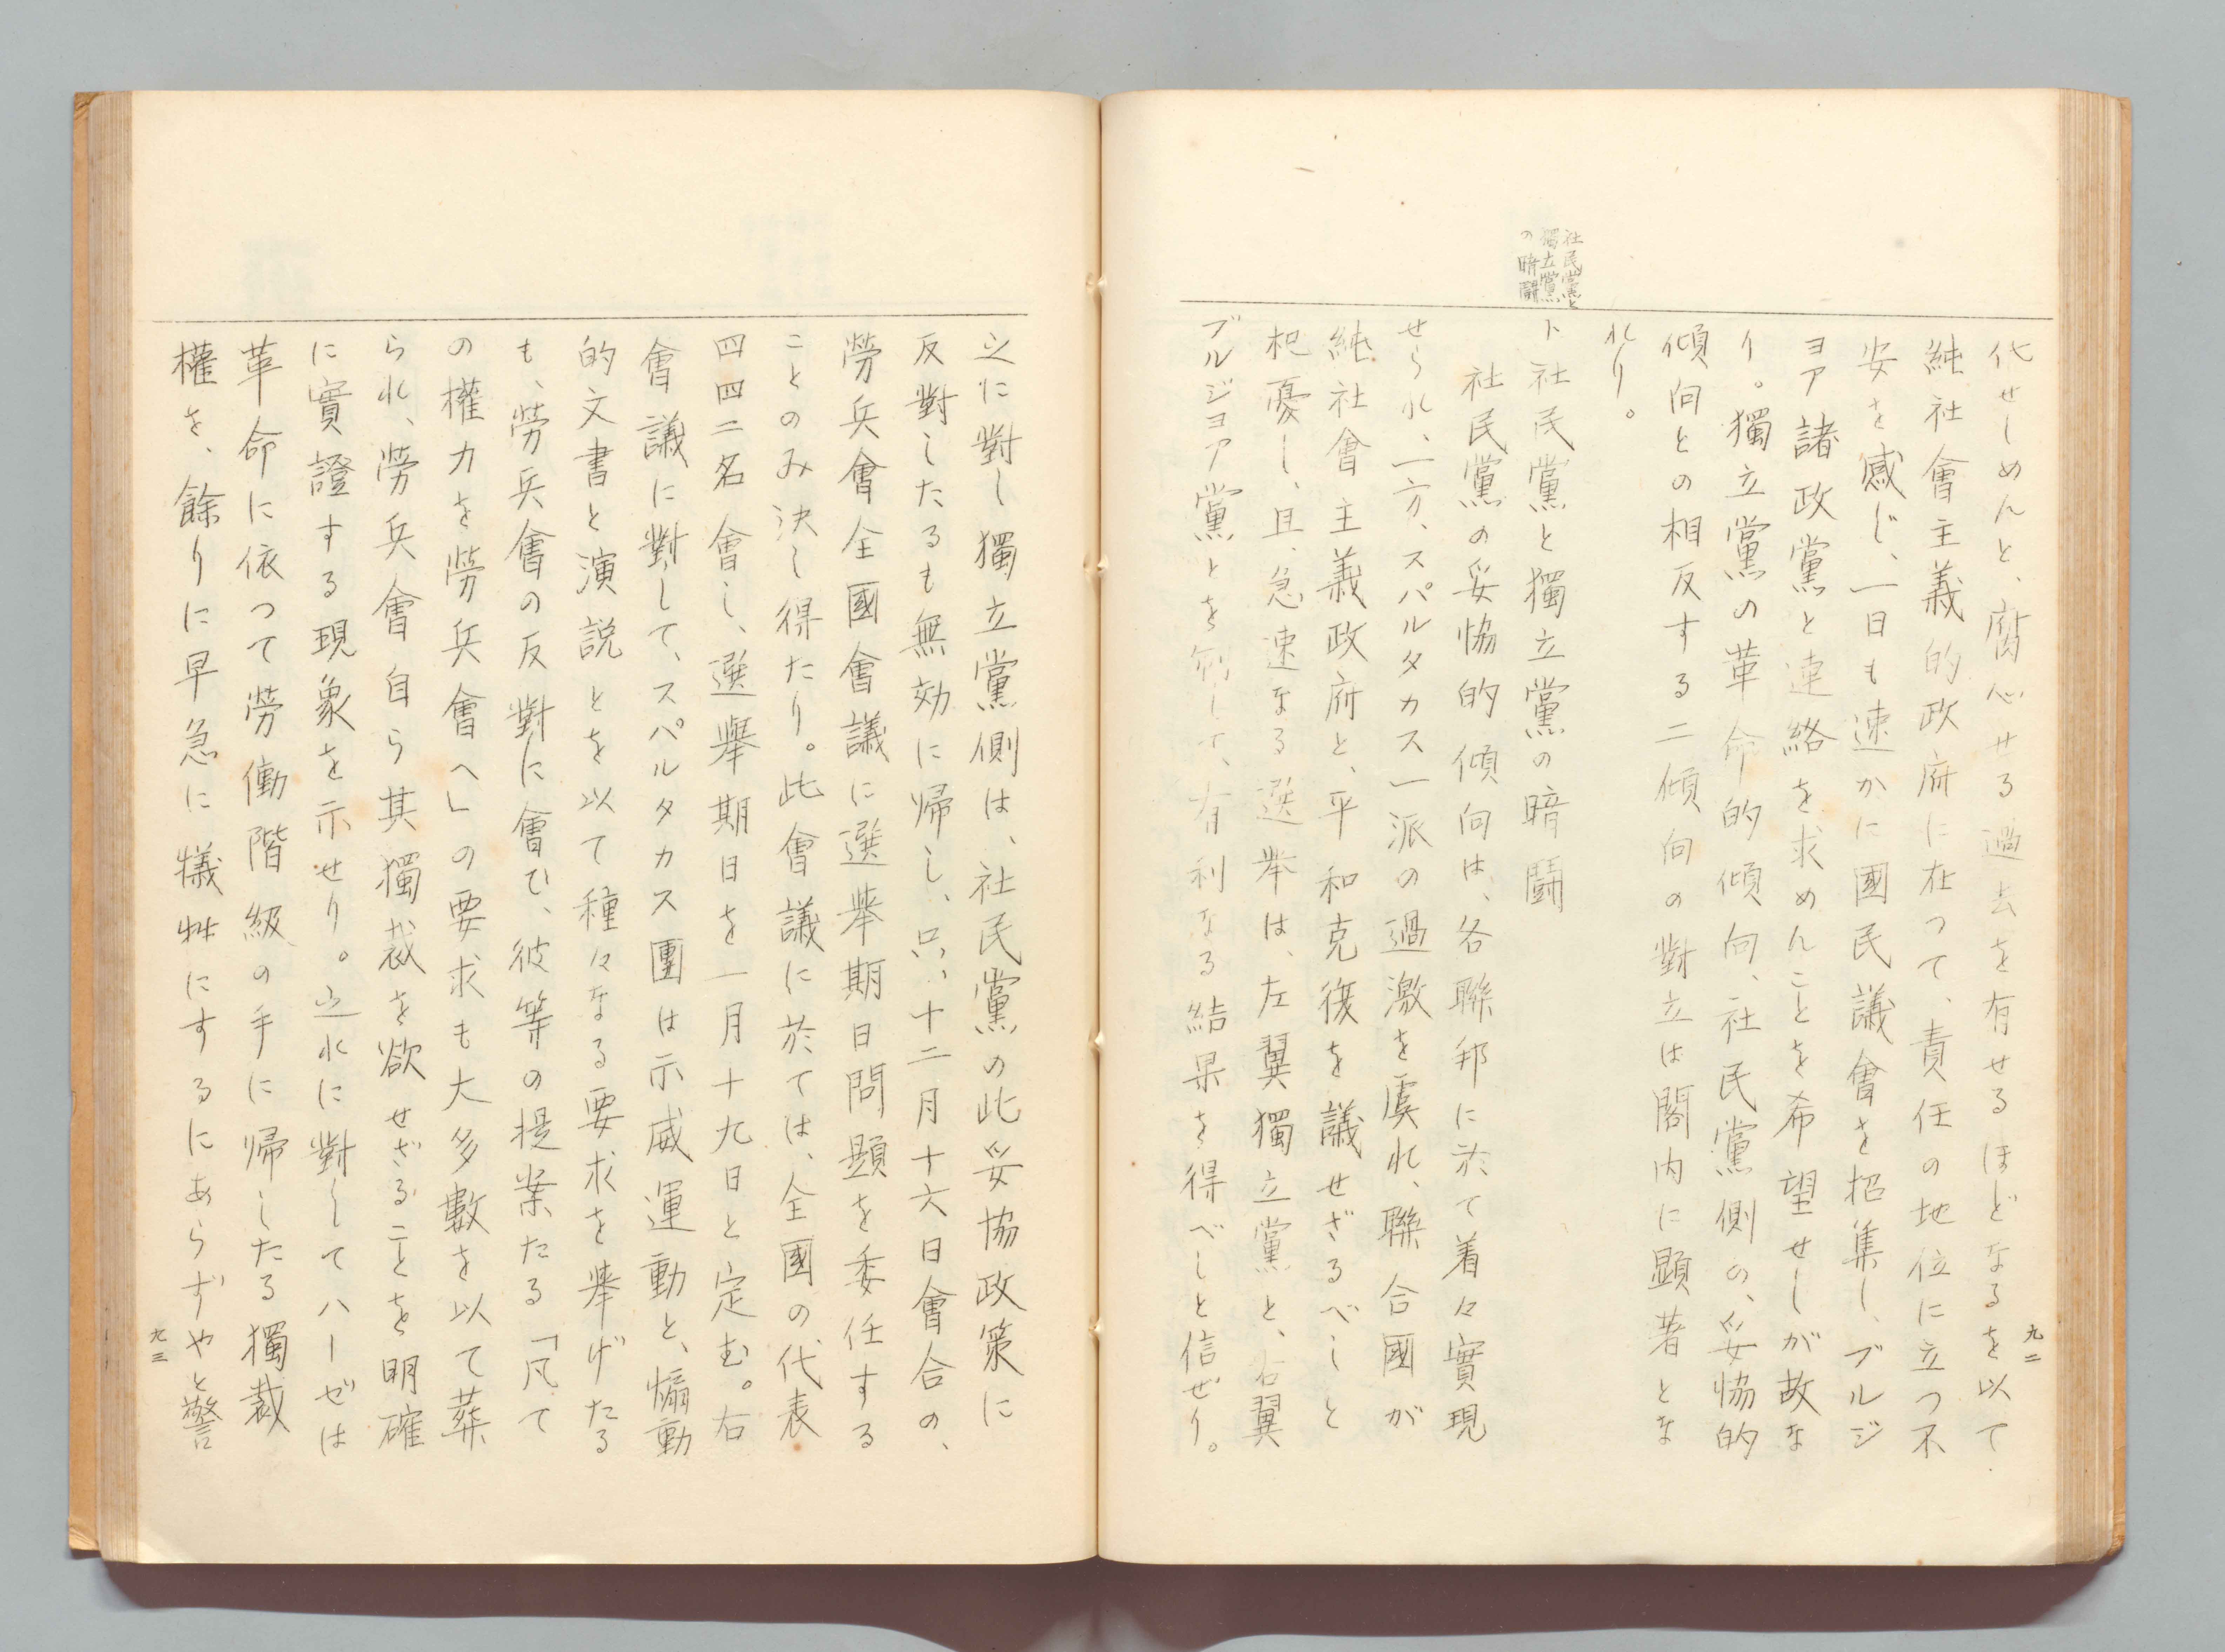 九二
代せしめんと、腐心せる過去を有せるほどなるを以て
純社會主義的政府に在つて、責任の地位に立つ不
安を感じ、一日も速かに國民議會を招集し、ブルジ
ヨア諸政黨と連絡を求めんことを希望せしが故な
り。獨立黨の革命的傾向、社民黨側の、妥恊的
傾向との相反する二傾向の對立は閣内に顕著とな
れり。
社民黨と
獨立黨
の暗闘
ト社民黨と獨立黨の暗鬪
社民黨の妥恊的傾向は、各聯邦に於て着々實現
せられ、一方、スパルタカス一派の過激を虞れ、聯合國が
純社會主義政府と、平和克復を議せざるべしと
杞憂し、且、急速なる選挙は、左翼獨立黨と、右翼
ブルジヨア黨とを制して、有利なる結果を得べしと信ぜり。
之に對し獨立黨側は、社民黨の此妥協政策に
反對したるも無効に帰し、只、十二月十六日會合の、
勞兵會全國會議に選擧期日問題を委任する
ことのみ決し得たり。此會議に於ては、全國の代表
四四二名會し、選擧期日を一月十九日と定む。右
會議に對して、スパルタカス團は示威運動と、煽動
的文書と演説とを以て種々なる要求を擧げたる
も、勞兵會の反對に會ひ、彼等の提案たる「凡て
の權力を勞兵會へ」の要求も大多數を以て葬
られ、勞兵會自ら其獨裁を欲せざることを明確
に實證する現象を示せり。之れに對してハーゼは
革命に依つて勞働階級の手に帰したる獨裁
權を、餘りに早急に犠牲にするにあらずやと警
九三